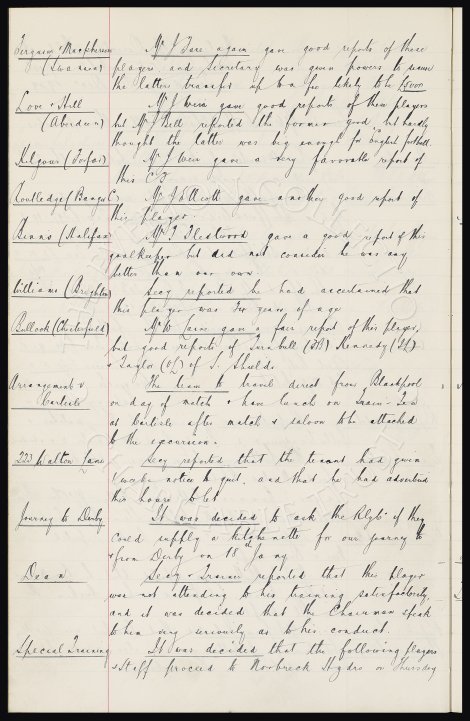 Ferguson & Macpherson Mr J Fare again gave good reports of these
(Swansea) players and Secretary was given powers to secure
the latters transfer up to a fee likely to be £5000
Love & Hill Mr J Weir gave good reports of these players
(Aberdeen) but Mr Bell reported the former good, but hardly
thought the latter was big enough for English football.
Kilgour (Forfar) Mr Weir gave a very favorable report of
this C/F
Routledge (Bangor) Mr J Ellicott gave another good report of
this player.
Binns (Halifax) Mr T Fleetwood gave a good report of this
goalkeeper but did not consider he was any
better than our own.
Williams (Brighton) Secy reported he had ascertained that
this player was years of age
Bullock (Chesterfield) Mr W gave a fair report of this player,
but good reports of Turnbull (IR) Kennedy (IL)
& Taylor (OL) of S. Shields
Arrangements v The team to travel direct from Blackpool
Carlisle on day of match & have lunch on train - Tea
at Carlisle after match & saloon to be attached
to the excursion.
223 Walton Lane Secy reported that the tenant had given
1 weeks notice to quit, and that he had advertised
this house to let
Journey to Derby It was decided to ask the Rlys if they
could supply a kitchenette for our journey to
& from Derby on 18th Jany
Dean Secy & Trainer reported that this player
was not attending to his training satisfactorily,
and it was decided that the Chairman speak
to him very seriously as to his conduct.
Special Training It was decided that the following players
& Staff proceed to Norbreck Hydro on Thursday